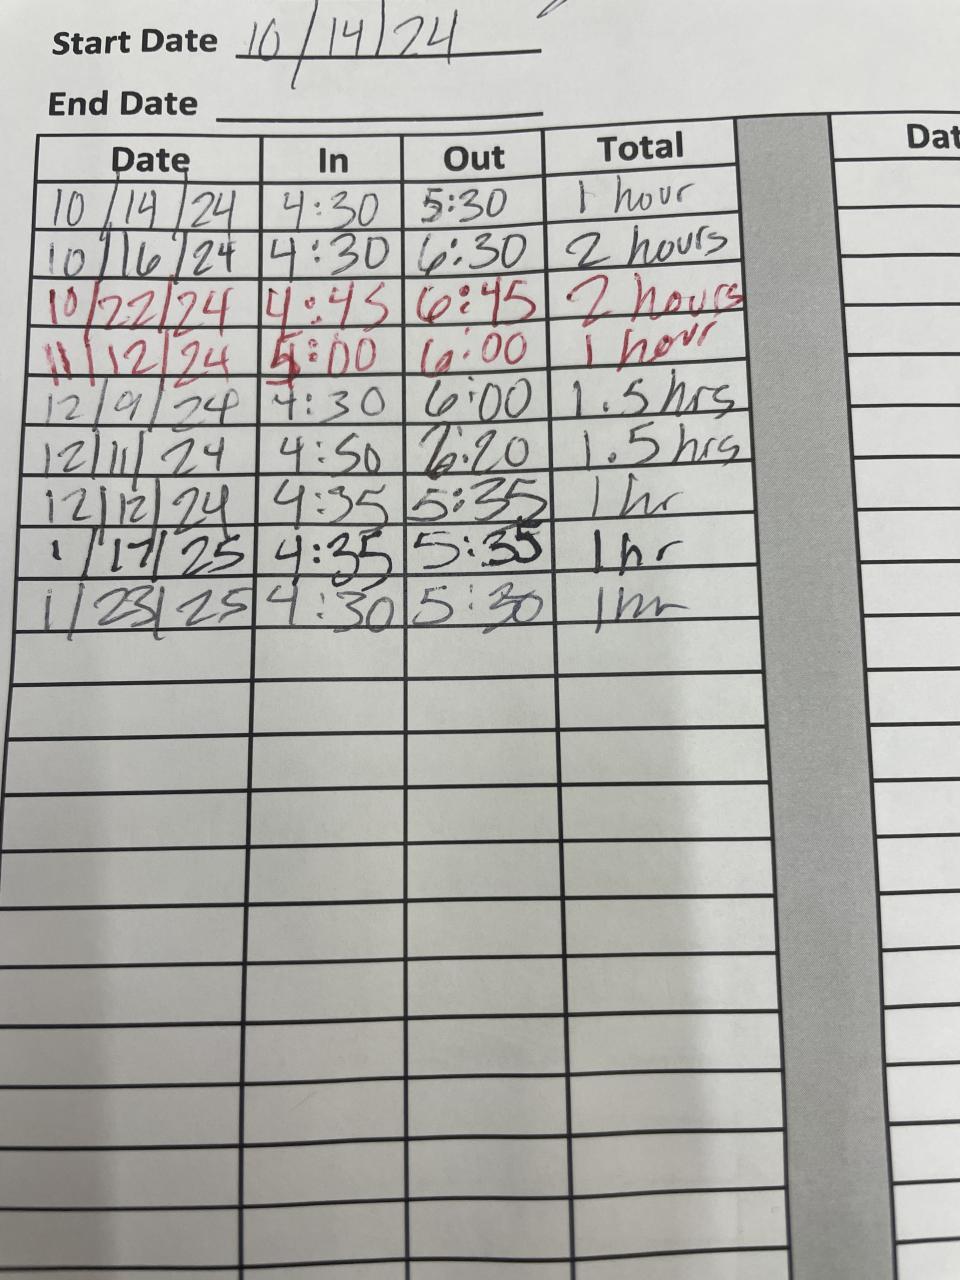 Start Date 10/14/24
End Date
Date In Out Total
10/14/24 4:30 5:30 1 hour
10/16/24 4:30 6:30 2 hours
10/22/24 4:45 6:45 2 hours
11/12/24 5:00 6:00 1 hour
12/9/24 4:30 6:00 1.5 hrs
12/11/24 4:50 6:20 1.5 hrs
12/12/24 4:35 5:35 1 hr
1/17/25 4:35 5:35 1 hr
1/23/25 4:30 5:30 1 hr